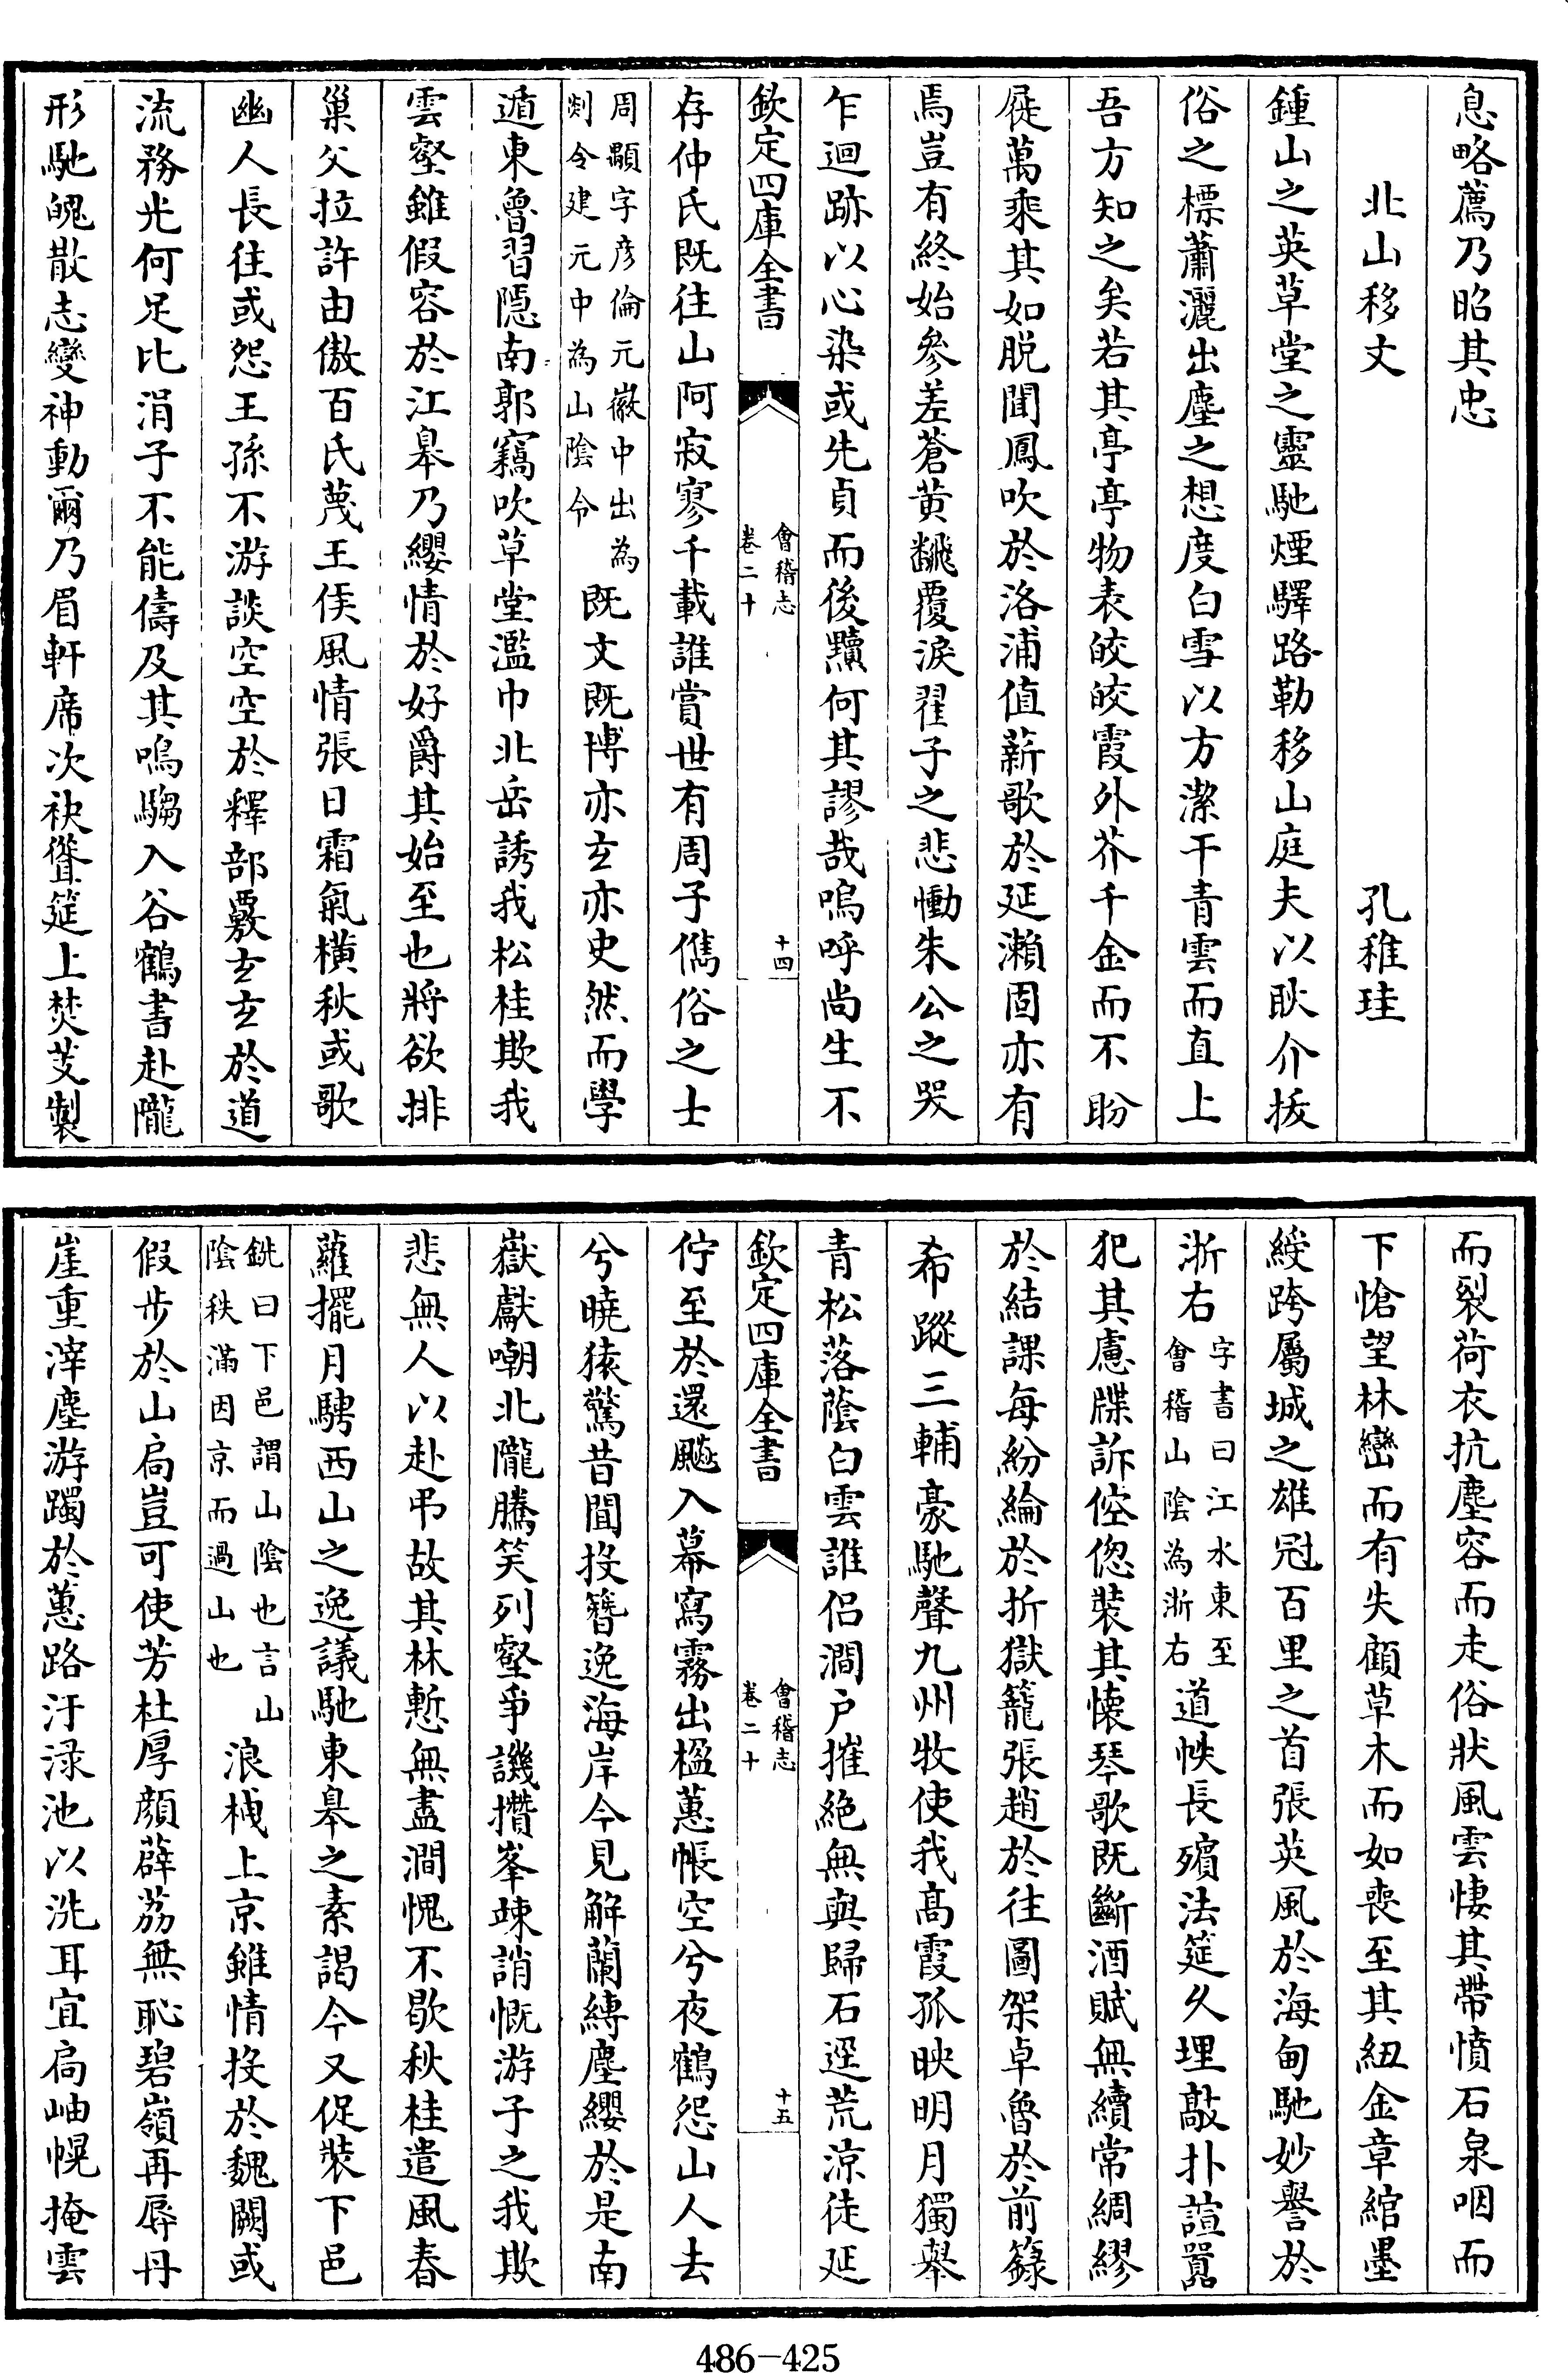 息略薦乃昭其忠
北山移文　孔稚珪
鍾山之英草堂之靈馳煙驛路勒移山庭夫以耿介拔
俗之標蕭灑出塵之想度白雪以方潔干青雲而直上
吾方知之矣若其亭亭物表皎皎霞外芥千金而不盼
屣萬乘其如脱聞鳳吹於洛浦值薪歌於延瀨固亦有
焉豈有終始參差蒼黄飜覆淚翟子之悲慟朱公之哭
乍迴跡以心染或先貞而後黷何其謬哉嗚呼尚生不
欽定四庫全書
會稽志
卷二十
十四
存仲氏既往山阿寂寥千載誰賞世有周子儁俗之士
周顒字彦倫元徽中出為
剡令建元中為山陰令
既文既博亦玄亦史然而學
遁東魯習隱南郭竊吹草堂濫巾北岳誘我松桂欺我
雲壑雖假容於江皋乃纓情於好爵其始至也將欲排
巢父拉許由傲百氏蔑王侯風情張日霜氣橫秋或歌
幽人長往或怨王孫不游談空空於釋部覈玄玄於道
流務光何足比涓子不能儔及其鳴騶入谷鶴書赴隴
形馳魄散志變神動爾乃眉軒席次袂聳筵上焚芰製
而裂荷衣抗塵容而走俗狀風雲悽其帶憤石泉咽而
下愴望林巒而有失顧草木而如喪至其紐金章綰墨
綬跨屬城之雄冠百里之首張英風於海甸馳妙譽於
浙右
字書曰江水東至
會稽山陰為浙右
道帙長殯法筵久埋敲扑諠囂
犯其慮牒訴倥偬裝其懷琴歌既斷酒賦無續常綢繆
於結課每紛綸於折獄籠張趙於往圖架卓魯於前籙
希蹤三輔豪馳聲九州牧使我髙霞孤映明月獨舉
青松落蔭白雲誰侣澗户摧絶無與歸石逕荒涼徒延
欽定四庫全書
會稽志
卷二十
十五
佇至於還飈入幕寫霧出楹蕙帳空兮夜鶴怨山人去
兮曉猿驚昔聞投簪逸海岸今見解蘭縛塵纓於是南
嶽獻嘲北隴騰笑列壑爭譏攢峯竦誚慨游子之我欺
悲無人以赴弔故其林慙無盡澗愧不歇秋桂遣風春
蘿擺月騁西山之逸議馳東皋之素謁今又促裝下邑
銑曰下邑謂山陰也言山
陰秩滿因京而過山也
浪栧上京雖情投於魏闕或
假步於山扃豈可使芳杜厚顔薜荔無恥碧嶺再辱丹
崖重滓塵游躅於蕙路汙渌池以洗耳宜扃岫幌掩雲
486-425